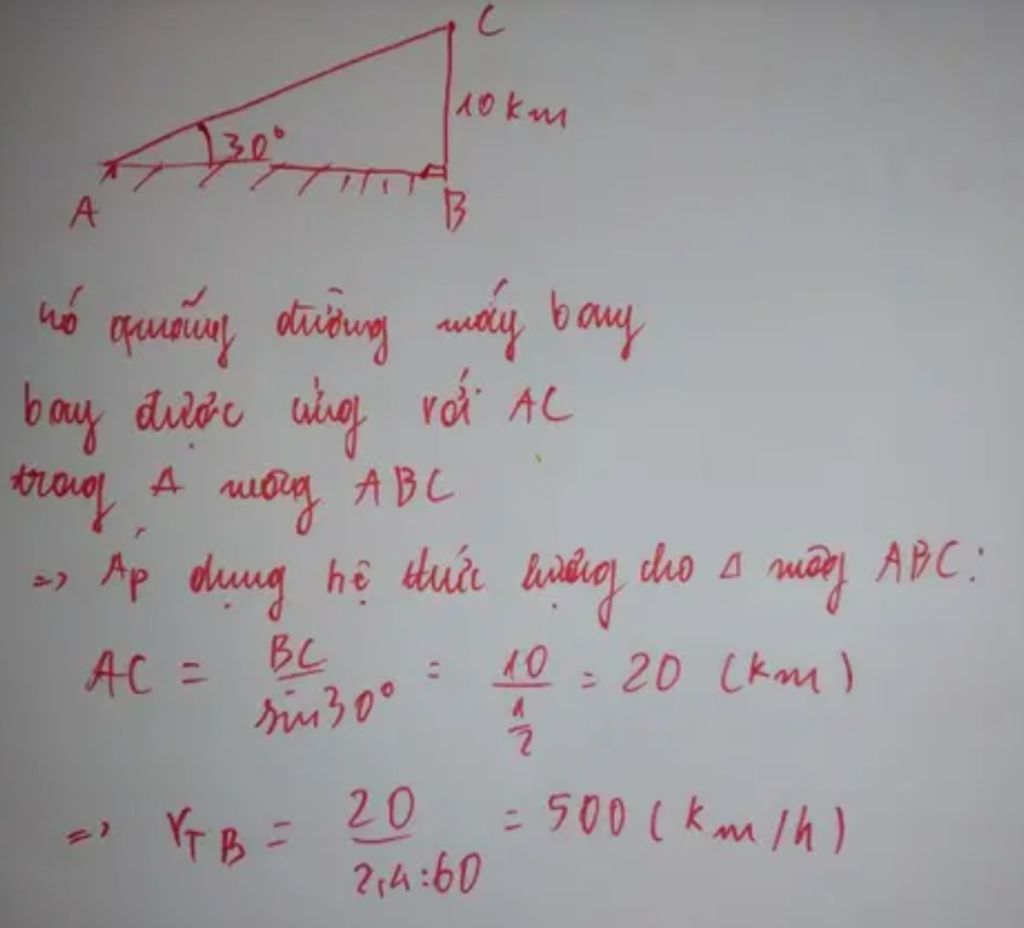 C
10 km
30°
A
B
Vì quãng đường máy bay
bay được ứng với AC
trong Δ vuông ABC
=> Áp dụng hệ thức lượng cho Δ vuông ABC:
AC = BC/sin30° = 10/(1/2) = 20 (km)
=> VTB = 20/(2,4:60) = 500 (km/h)